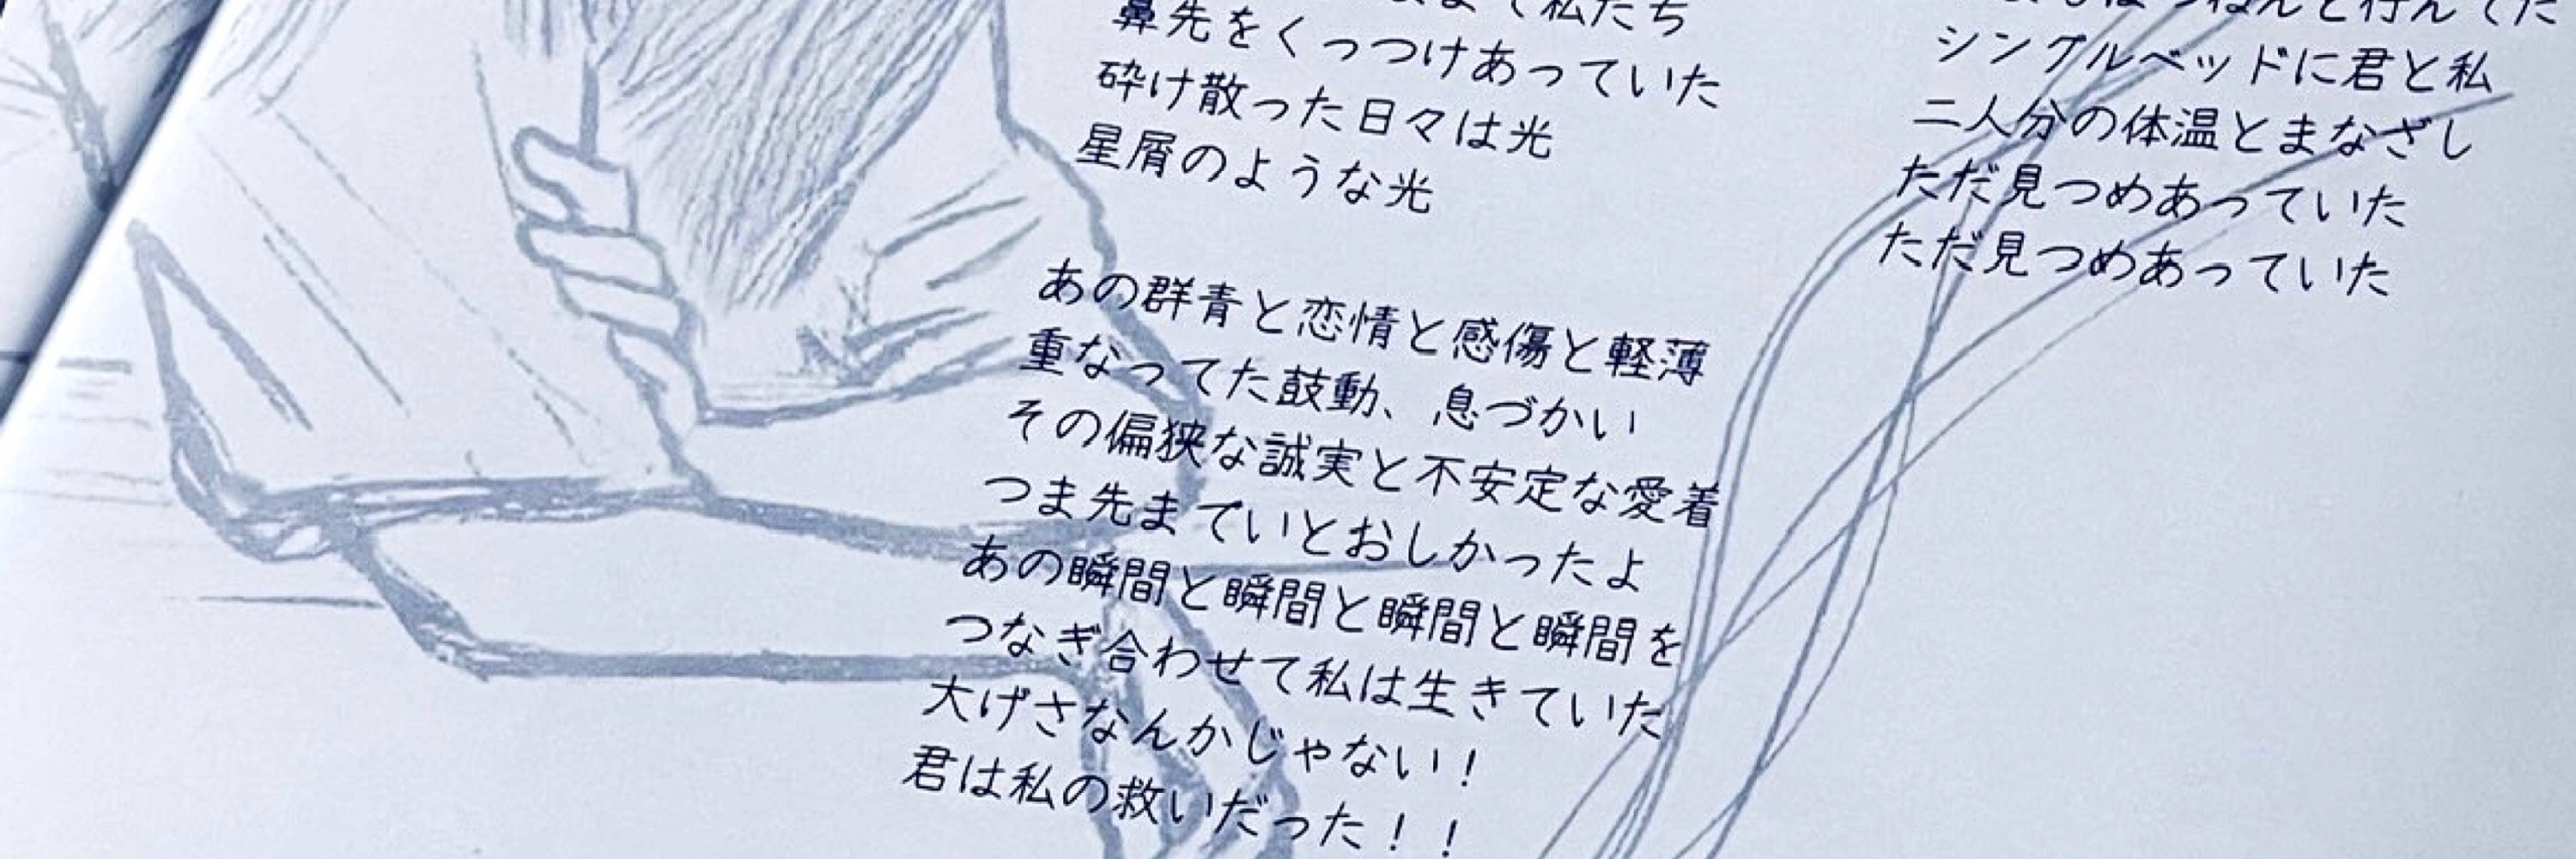 私たち
鼻先をくっつけあっていた
砕け散った日々は光
星屑のような光
あの群青と恋情と感傷と軽薄
重なってた鼓動、息づかい
その偏狭な誠実と不安定な愛着
つま先までいとおしかったよ
あの瞬間と瞬間と瞬間と瞬間を
つなぎ合わせて私は生きていた
大げさなんかじゃない！
君は私の救いだった！！
シングルベッドに君と私
二人分の体温とまなざし
ただ見つめあっていた
ただ見つめあっていた